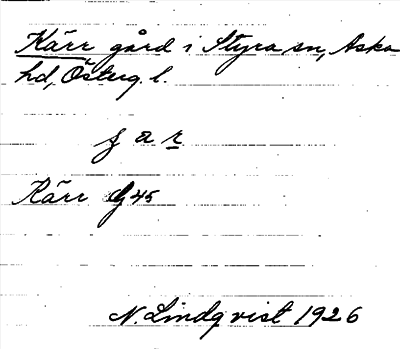 Kärr gård i Styra sn, Aska
hd, Österg. l.
ꞔ a r
Kärr G 45
N. Lindqvist 1926